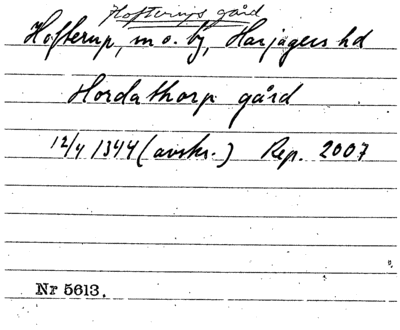 Hofterups gård
Hofterup, m o. by, Harjagers hd
Hordathorp gård
12/4 1344 (avskr.) Rep. 2007
Nr 5613.